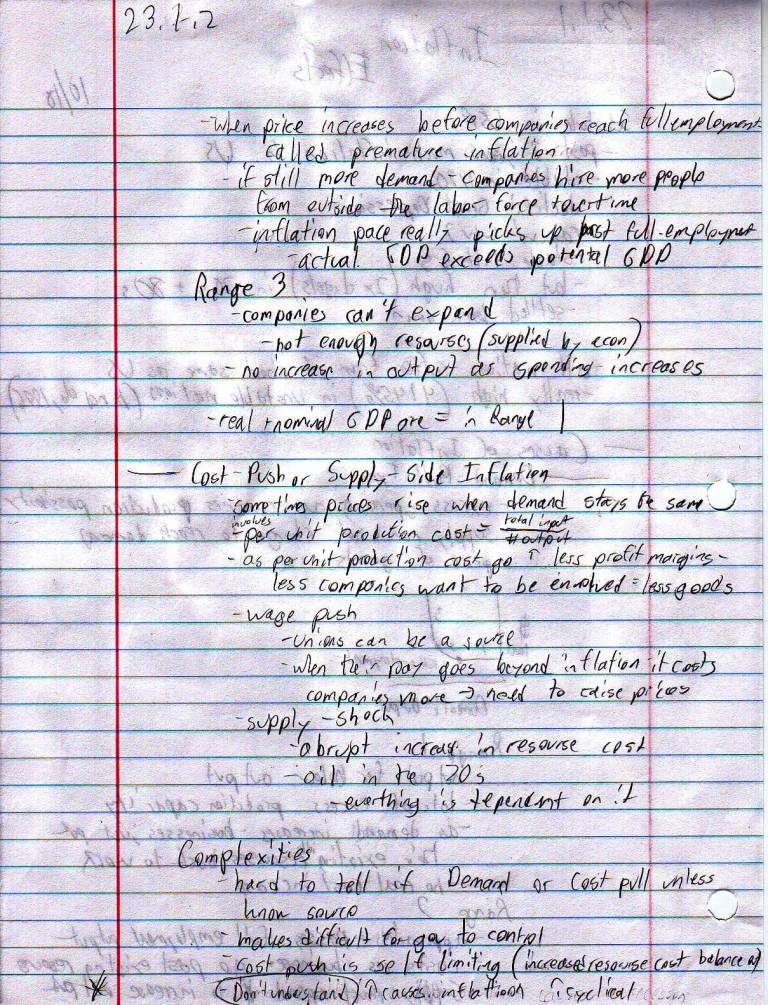 23.1.2
-when price increases before companies reach full employment
called premature inflation
-if still more demand - companies hire more people
from outside the labor force + overtime
-inflation pace really picks up past full-employment
-actual GDP exceeds potental GDP
Range 3
-companies can't expand
-not enough resourses (supplied by econ)
-no increase in output as spending increases
-real + nominal GDP are = in Range 1
Cost-Push or Supply-Side Inflation
-sometimes prices rise when demand stays the same
involves
-per unit production cost = total input / # output
-as per unit production cost go ↑ less profit margins-
less companies want to be envolved = less goods
-wage push
-unions can be a source
-when their pay goes beyond inflation it costs
companies more → need to raise prices
-supply-shock
-abrupt increase in resourse cost
-oil in the 70s
-everthing is dependent on it
Complexities
-hard to tell if Demand or Cost pull unless
know source
-makes difficult for gov to control
-cost push is self limiting (increased resourse cost balance
(Don't understand) ↑ causes inflation